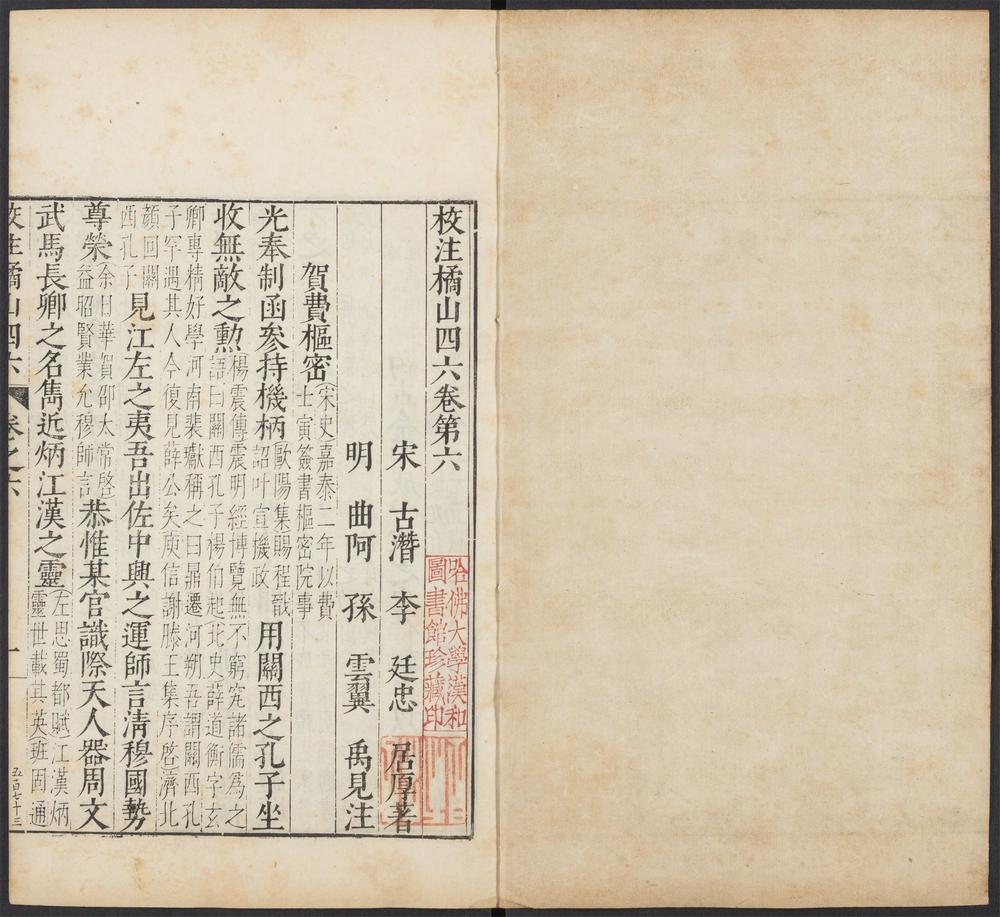 校注橘山四六卷第六
哈佛大學漢和
圖書館珍藏印
宋 古潛 李 廷忠 居厚著
明 曲阿 孫 雲翼 禹見注
賀費樞密宋史嘉泰二年以費
士寅簽書樞密院事
光奉制函參持機柄歐陽集賜程戩
詔叶宣機政用關西之孔子坐
收無敵之勲楊震傳震明經博覽無不窮究諸儒為之
語曰關西孔子楊伯起北史薛道衡字玄
卿專精好學河南裴讞稱之曰鼎遷河朔吾謂關西孔
子罕遇其人今復見薛公矣庾信謝滕王集序啓濟北
顏回關
西孔子見江左之夷吾出佐中興之運師言淸穆國勢
尊榮余日華賀邵太常啓
益昭賢業允穆師言恭惟某官識際天人器周文
武馬長卿之名雋近炳江漢之靈左思蜀都賦江漢炳
靈世載其英班固通
校注橘山四六 卷之六 一 五百七十三